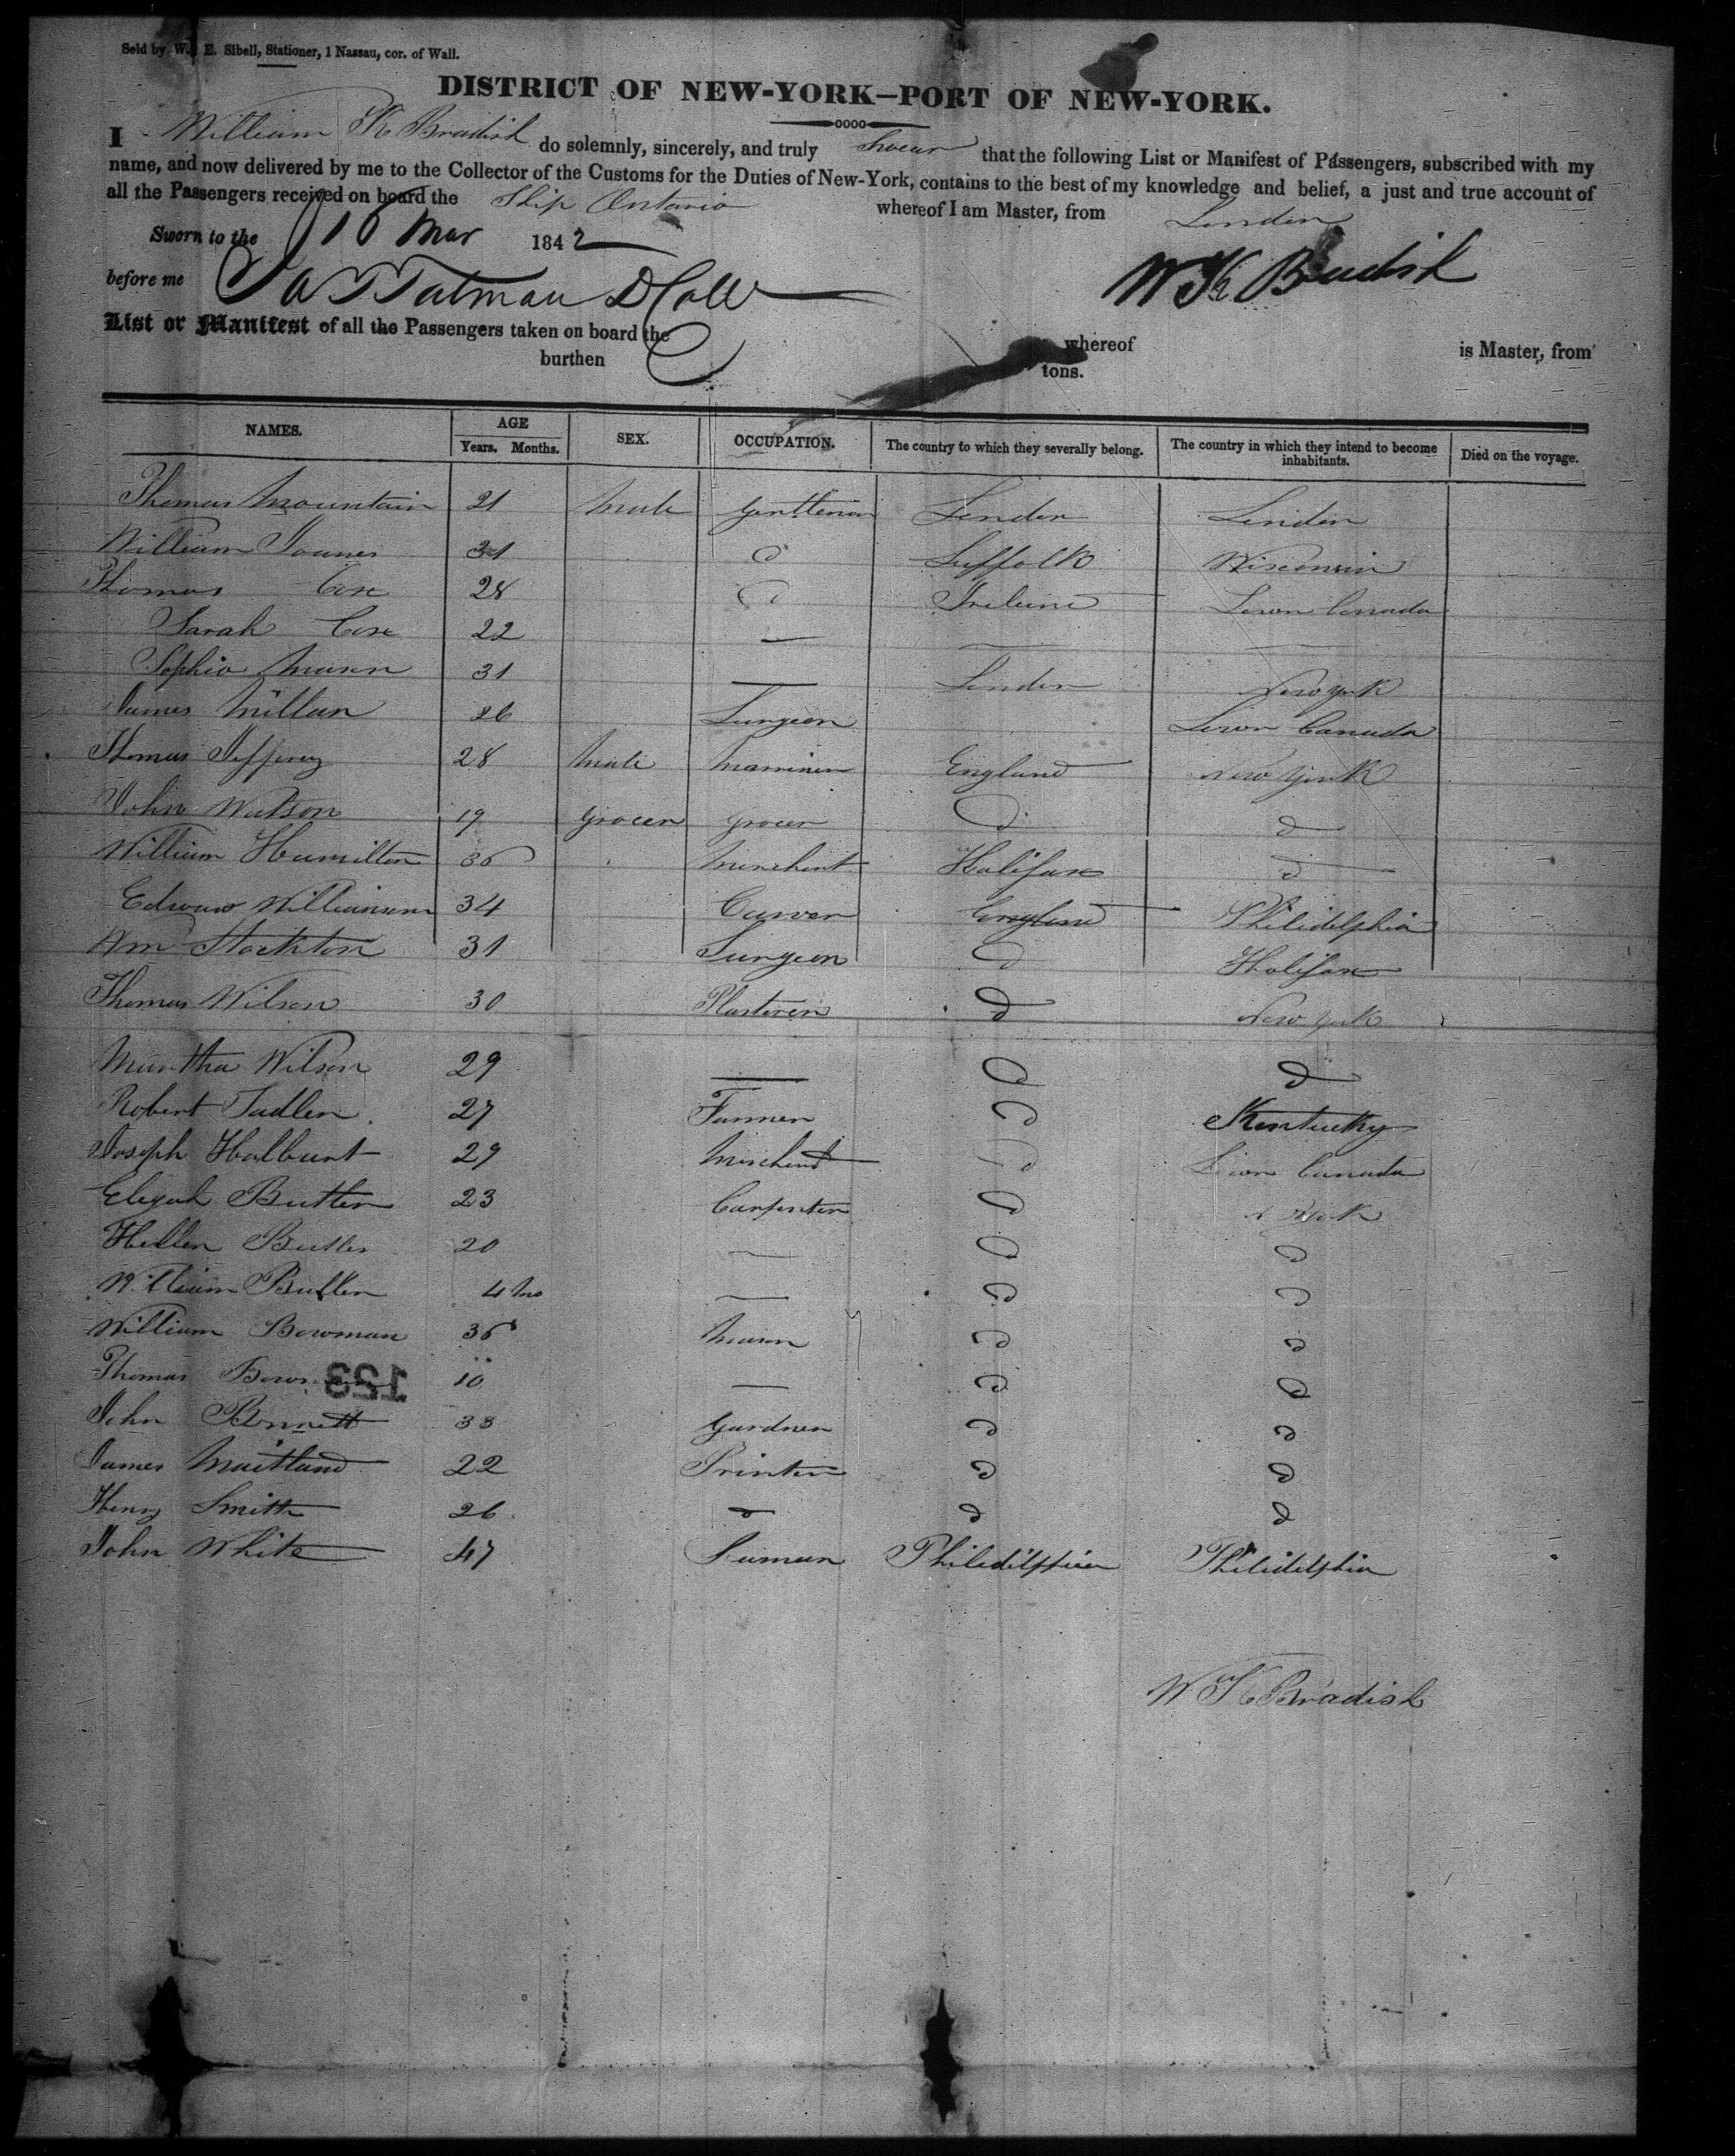 Sold by W. E. Sibell, Stationer, 1 Nassau, cor. of Wall.
DISTRICT OF NEW-YORK—PORT OF NEW-YORK.
I William K Bradish do solemnly, sincerely, and truly swear that the following List or Manifest of Passengers, subscribed with my
name, and now delivered by me to the Collector of the Customs for the Duties of New-York, contains to the best of my knowledge and belief, a just and true account of
all the Passengers received on board the Ship Ontario whereof I am Master, from London
Sworn to the 16 Mar 1842
before me Talman D Coll W K Bradish
List or Manifest of all the Passengers taken on board the whereof is Master, from
burthen tons.
NAMES. AGE SEX. OCCUPATION. The country to which they severally belong. The country in which they intend to become inhabitants. Died on the voyage.
Years. Months.
Thomas Mountain 21 Male Gentleman London London
William 31 d Suffolk Wisconsin
Thomas Cox 28 d Ireland Lower Canada
Sarah Cox 22 — — —
Sophia Munn 31 — London New York
James Millan 26 Surgeon Lower Canada
Thomas Jefferey 28 Male Marriner England New York
John Watson 19 Grocer Grocer d d
William Hamilton 36 Merchant Halifax d
Edward Williamson 34 Carver England Philidelphia
Wm Stockton 31 Surgeon d Halifax
Thomas Wilson 30 Plasterer d New York
Martha Wilson 29 — d d
Robert Sadler 27 Farmer d Kentucky
Joseph Halburt 29 Merchant d Lower Canada
Elejah Butler 23 Carpenter d N York
Hellen Butler 20 — d d
William Butler 4 mo — d d
William Bowman 36 Mason d d
Thomas 10 — d d
123
John Bennett 38 Gardner d d
James Maitland 22 Printer d d
Henry Smith 26 d d d
John White 47 Seaman Philidelphia Philidelphia
W K Bradish